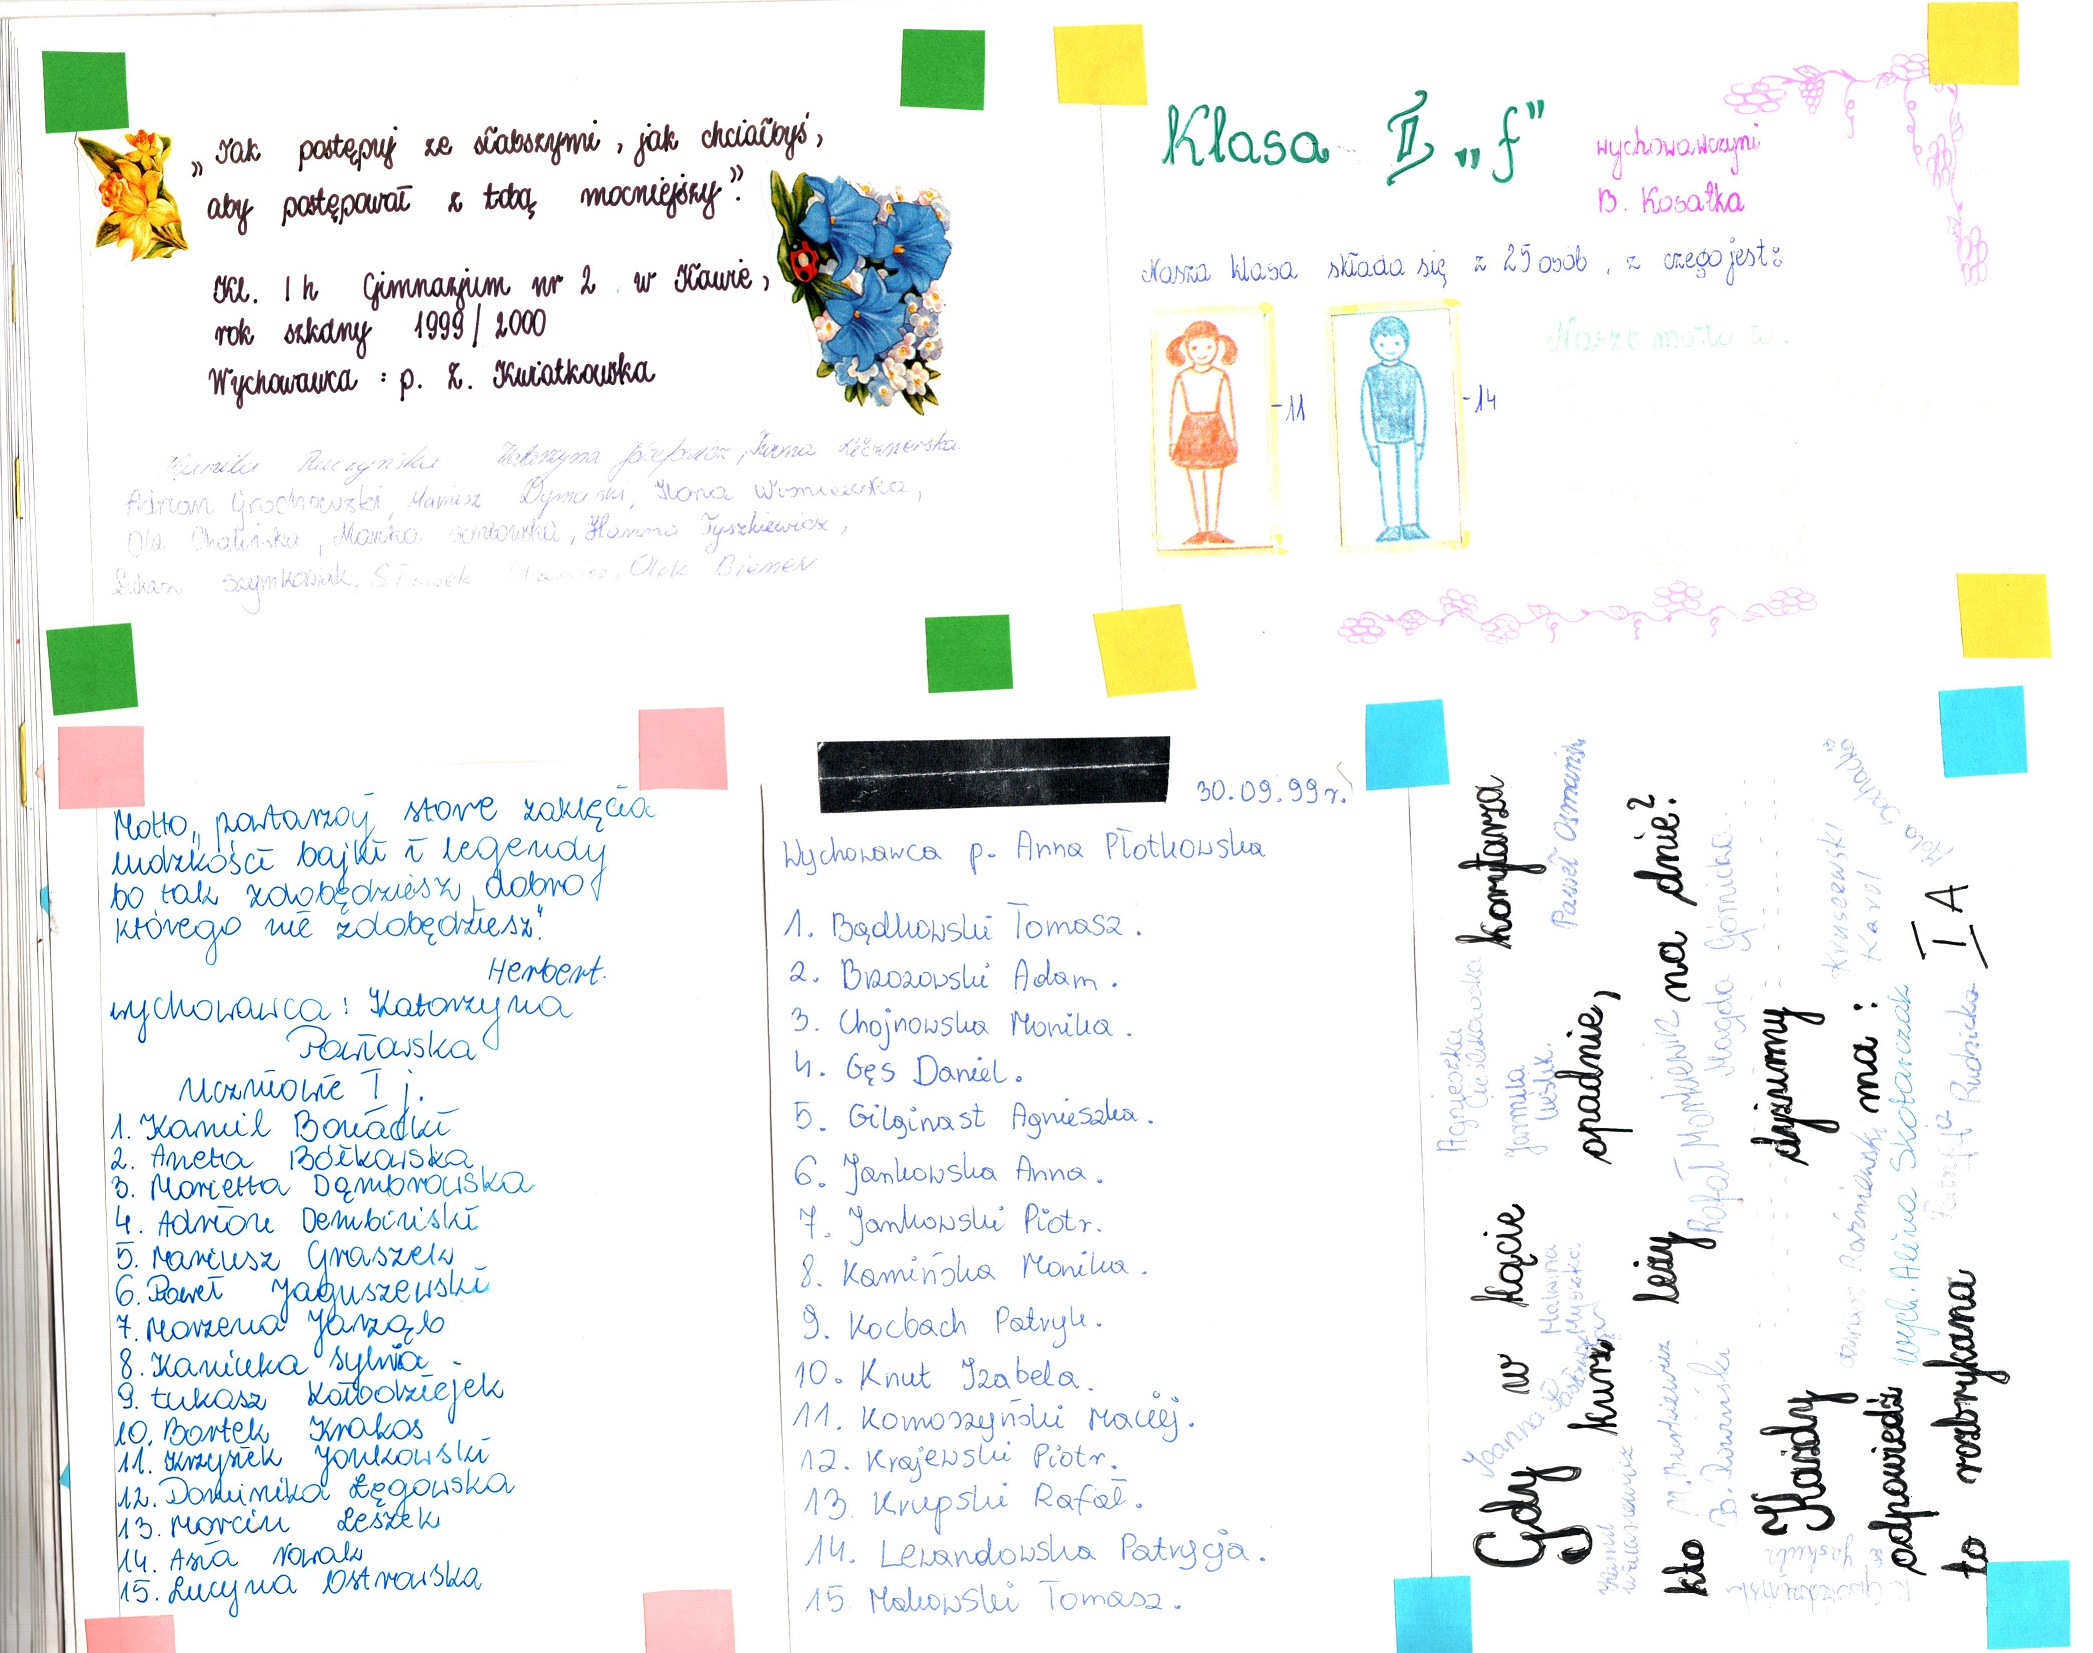 „Tak postępuj ze słabszymi, jak chciałbyś,
aby postępował z tobą mocniejszy".
Kl. I h Gimnazjum nr 2 w Iławie,
rok szkolny 1999/2000
Wychowawca: p. Z. Kwiatkowska
Kamila Katarzyna
Adrian Grochowski, Mariusz Dymarski, Ilona Wiśniewska,
Ola Chalińska, Marika Gontowska, Hanna Tyszkiewicz,
Łukasz Szymkowiak, Sławek Olek Biemer
Klasa II „f"
wychowawczyni
B. Kosałka
Nasza klasa składa się z 25 osób, z czego jest:
-11
-14
Nasze motto to:
Motto „powtarzaj stare zaklęcia
ludzkości bajki i legendy
bo tak zdobędziesz dobro
którego nie zdobędziesz".
Herbert.
wychowawca: Katarzyna
Pawłowska
Uczniowie I j.
1. Kamil
2. Aneta Bółkowska
3. Marietta Dąmbrowska
4. Adrian Dembiński
5. Mariusz Graszek
6. Paweł Jaguszewski
7. Marzena Jarząb
8. Kanicka Sylwia
9. Łukasz Kołodziejek
10. Bartek Krakos
11. Krzysiek Jankowski
12. Dominika Łęgowska
13. Marcin Leszek
14. Asia Nowak
15. Lucyna Ostrowska
30.09.99r.
Wychowawca p. Anna Płotkowska
1. Bądkowski Tomasz.
2. Brzozowski Adam.
3. Chojnowska Monika.
4. Gęs Daniel.
5. Gilginast Agnieszka.
6. Jankowska Anna.
7. Jankowski Piotr.
8. Kamińska Monika.
9. Kocbach Patryk.
10. Knut Izabela.
11. Komoszyński Maciej.
12. Krajewski Piotr.
13. Krupski Rafał.
14. Lewandowska Patrycja.
15. Makowski Tomasz.
Gdy w kącie korytarza
Agnieszka Cieślikowska
Jarmila
Paweł Osmański
Joanna
Malwina Myszka
kurz opadnie,
Kamil
kto leży na dnie?
M. Burkiewicz Rafał Markiewicz Magda Górnicka.
B. Rawański
Każdy dyżurny
Kruszewski Karol
odpowiedź ma:
wych. Alina Skolarczak
to rozbrykana I A
Rudzicka